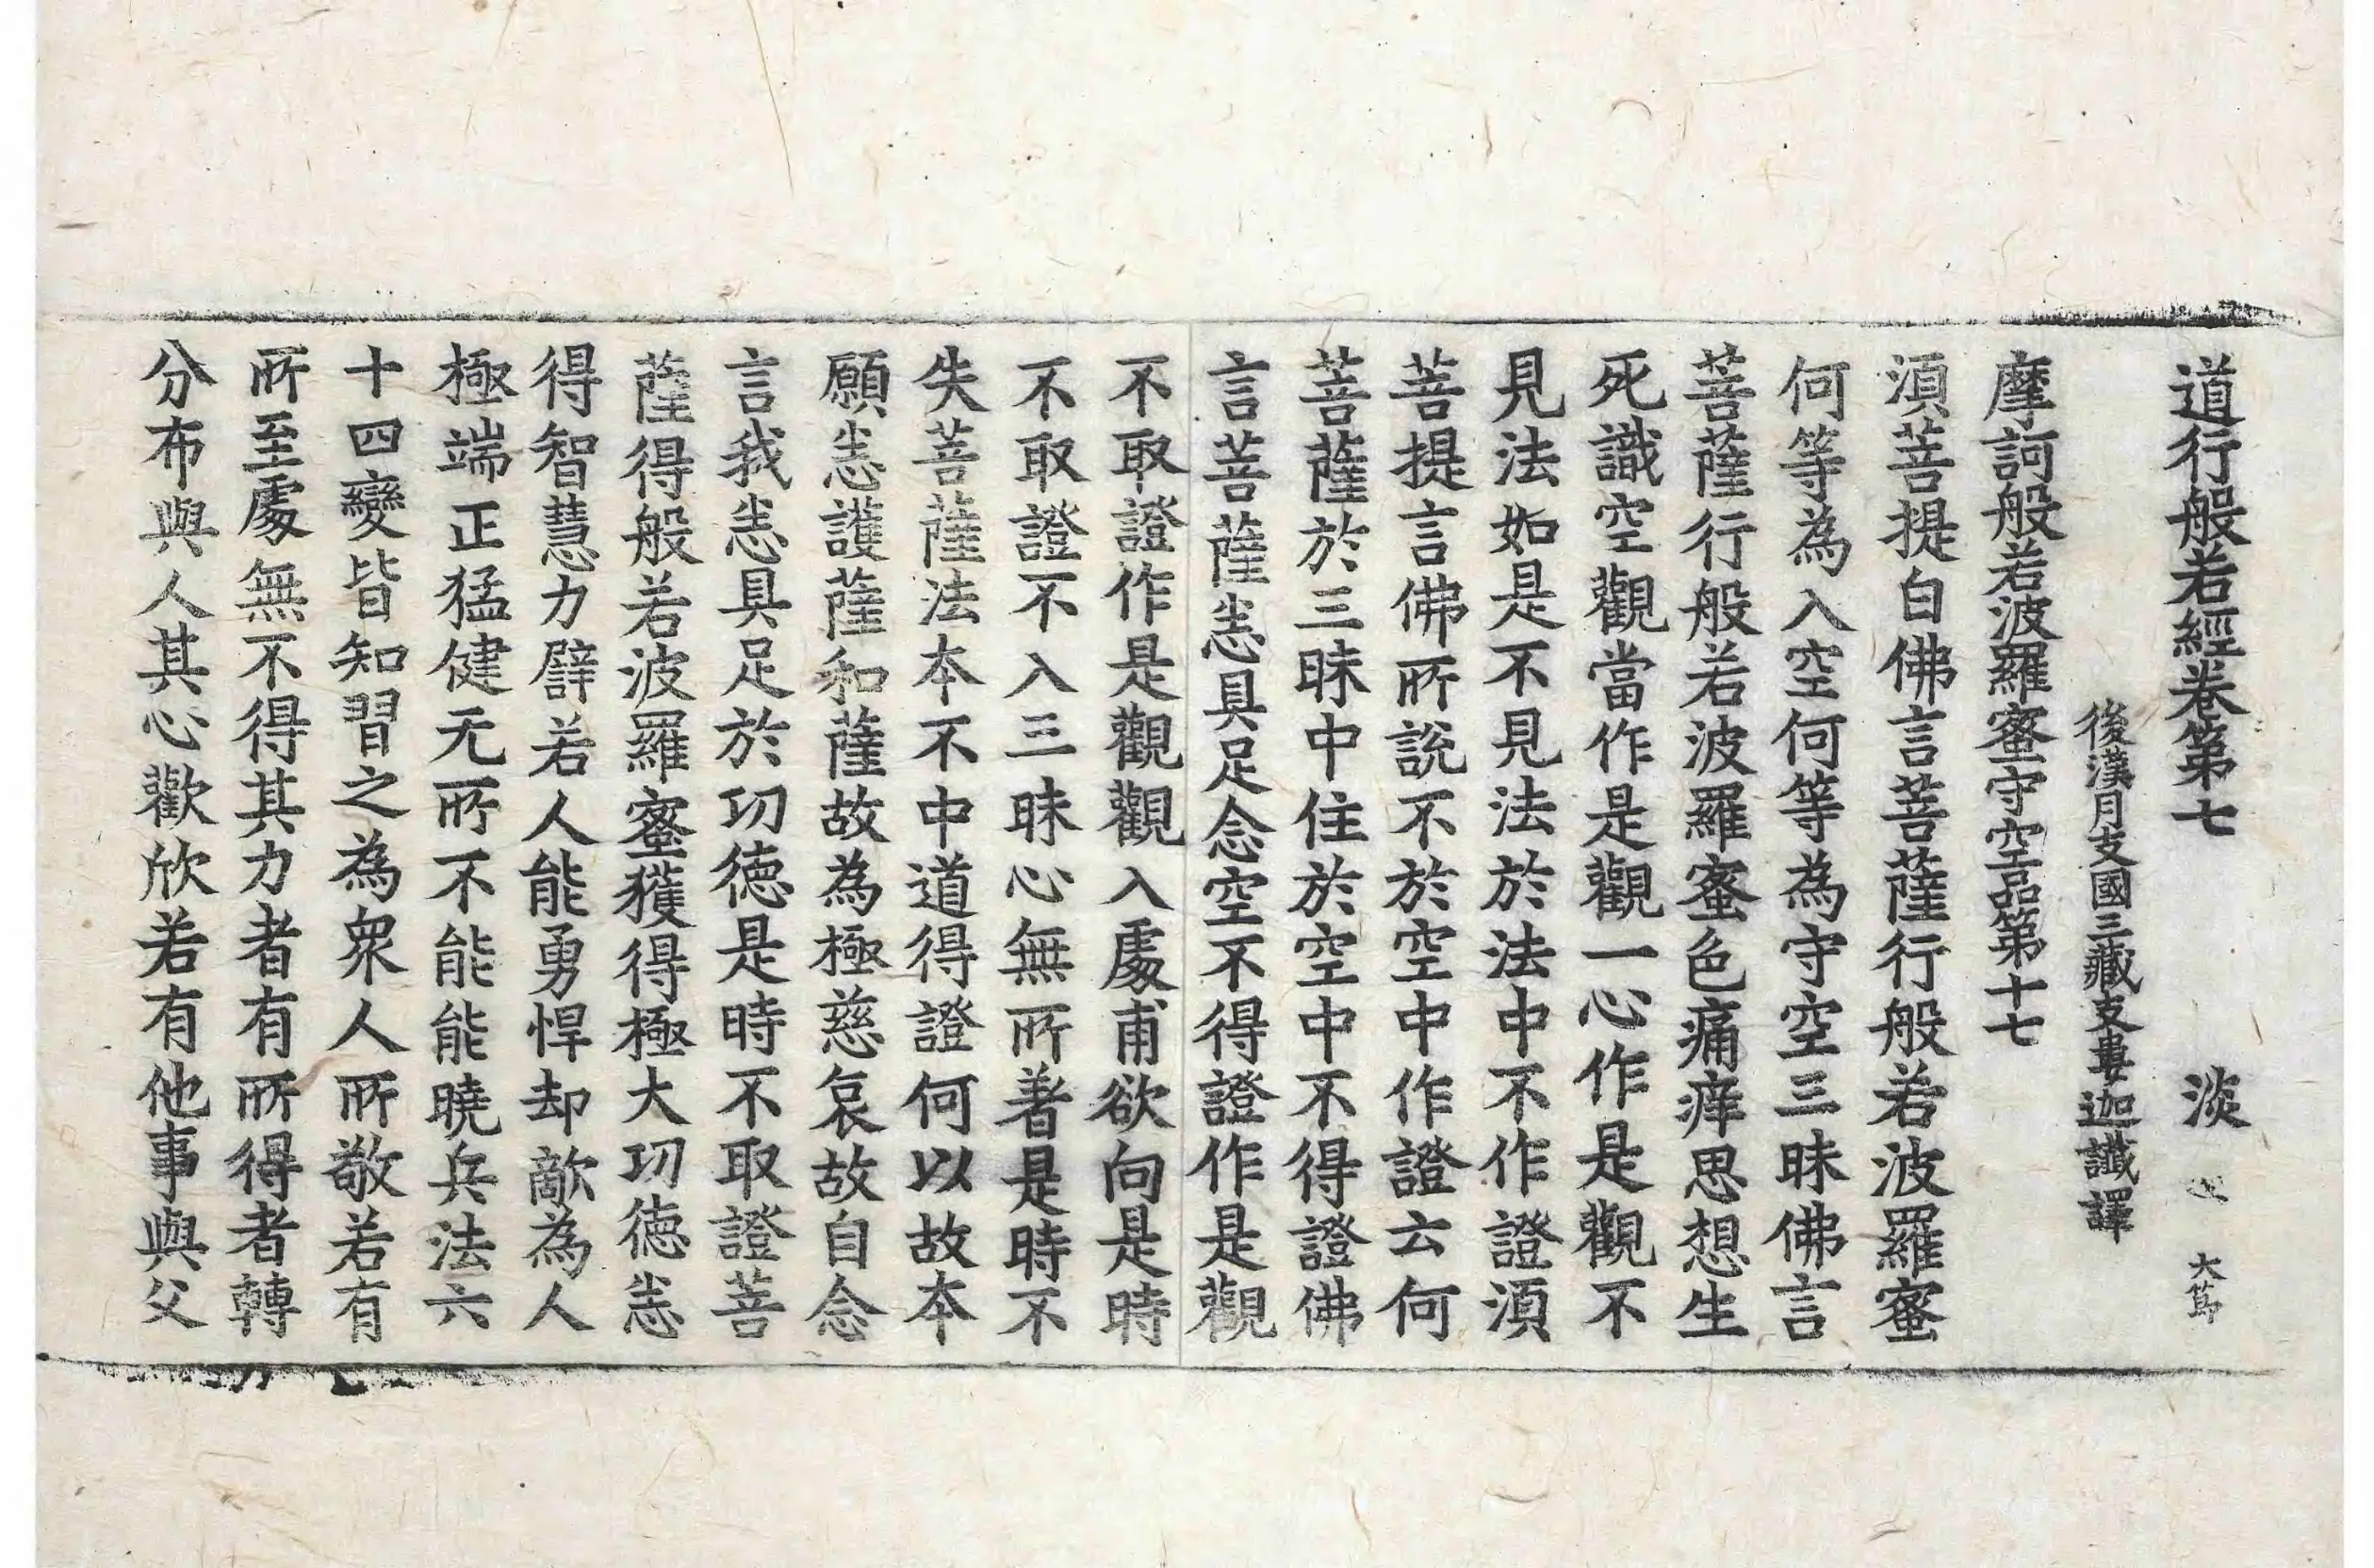 道行般若經卷第七 淡
大蔦
後漢月支國三藏支婁迦讖譯
摩訶般若波羅蜜守空品第十七
須菩提白佛言菩薩行般若波羅蜜
何等為入空何等為守空三昧佛言
菩薩行般若波羅蜜色痛痒思想生
死識空觀當作是觀一心作是觀不
見法如是不見法於法中不作證須
菩提言佛所說不於空中作證云何
菩薩於三昧中住於空中不得證佛
言菩薩悉具足念空不得證作是觀
不取證作是觀觀入處甫欲向是時
不取證不入三昧心無所著是時不
失菩薩法本不中道得證何以故本
願悉護薩和薩故為極慈哀故自念
言我悉具足於功德是時不取證菩
薩得般若波羅蜜獲得極大功德悉
得智慧力譬若人能勇悍却敵為人
極端正猛健无所不能能曉兵法六
十四變皆知習之為衆人所敬若有
所至處無不得其力者有所得者轉
分布與人其心歡欣若有他事與父